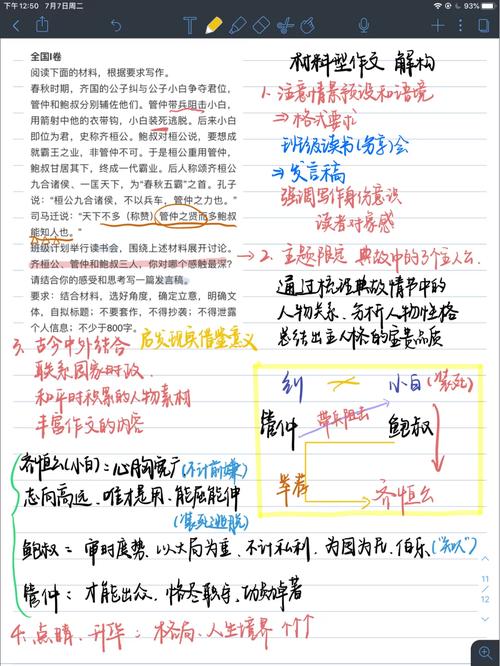 下午12:50 7月7日周二
93%
全国I卷
阅读下面的材料，根据要求写作。
春秋时期，齐国的公子纠与公子小白争夺君位，
管仲和鲍叔分别辅佐他们。管仲带兵阻击小白，
用箭射中他的衣带钩，小白装死逃脱。后来小白
即位为君，史称齐桓公。鲍叔对桓公说，要想成
就霸王之业，非管仲不可。于是桓公重用管仲，
鲍叔甘居其下，终成一代霸业。后人称颂齐桓公
九合诸侯、一匡天下，为“春秋五霸”之首。孔子
说：“桓公九合诸侯，不以兵车，管仲之力也。”
司马迁说：“天下不多（称赞）管仲之贤而多鲍叔
能知人也。”
班级计划举行读书会，围绕上述材料展开讨论。
齐桓公、管仲和鲍叔三人，你对哪个感触最深？
请结合你的感受和思考写一篇发言稿。
要求：结合材料，选好角度，确定立意，明确文
体，自拟标题；不要套作，不得抄袭；不得泄露
个人信息；不少于800字。
材料型作文 解构
1. 注意情景预设和语境
⇒格式要求
班级读书(分享)会
⇒发言稿
强调写作身份意识
读者对象感
2. 主题限定 典故中的3个主人公
通过梳理典故情节中的
人物关系、分析人物性格
总结出主人格的宝贵品质
3. 古今中外结合 启发现实借鉴意义
联系国家时政
和平时积累的人物素材
丰富作文的内容
纠 小白(装死)
管仲 带兵阻击 鲍叔
举荐 齐恒公
齐恒公(小白)：心胸宽广(不计前嫌)
志向高远、唯才是用、能屈能伸
(装死逃脱)
鲍叔：审时度势、以大局为重、不计私利、为国为民、伯乐("知人")
管仲：才能出众、恪尽职守、功勋卓著
4. 点睛、升华：格局、人生境界 个个↑
11
12